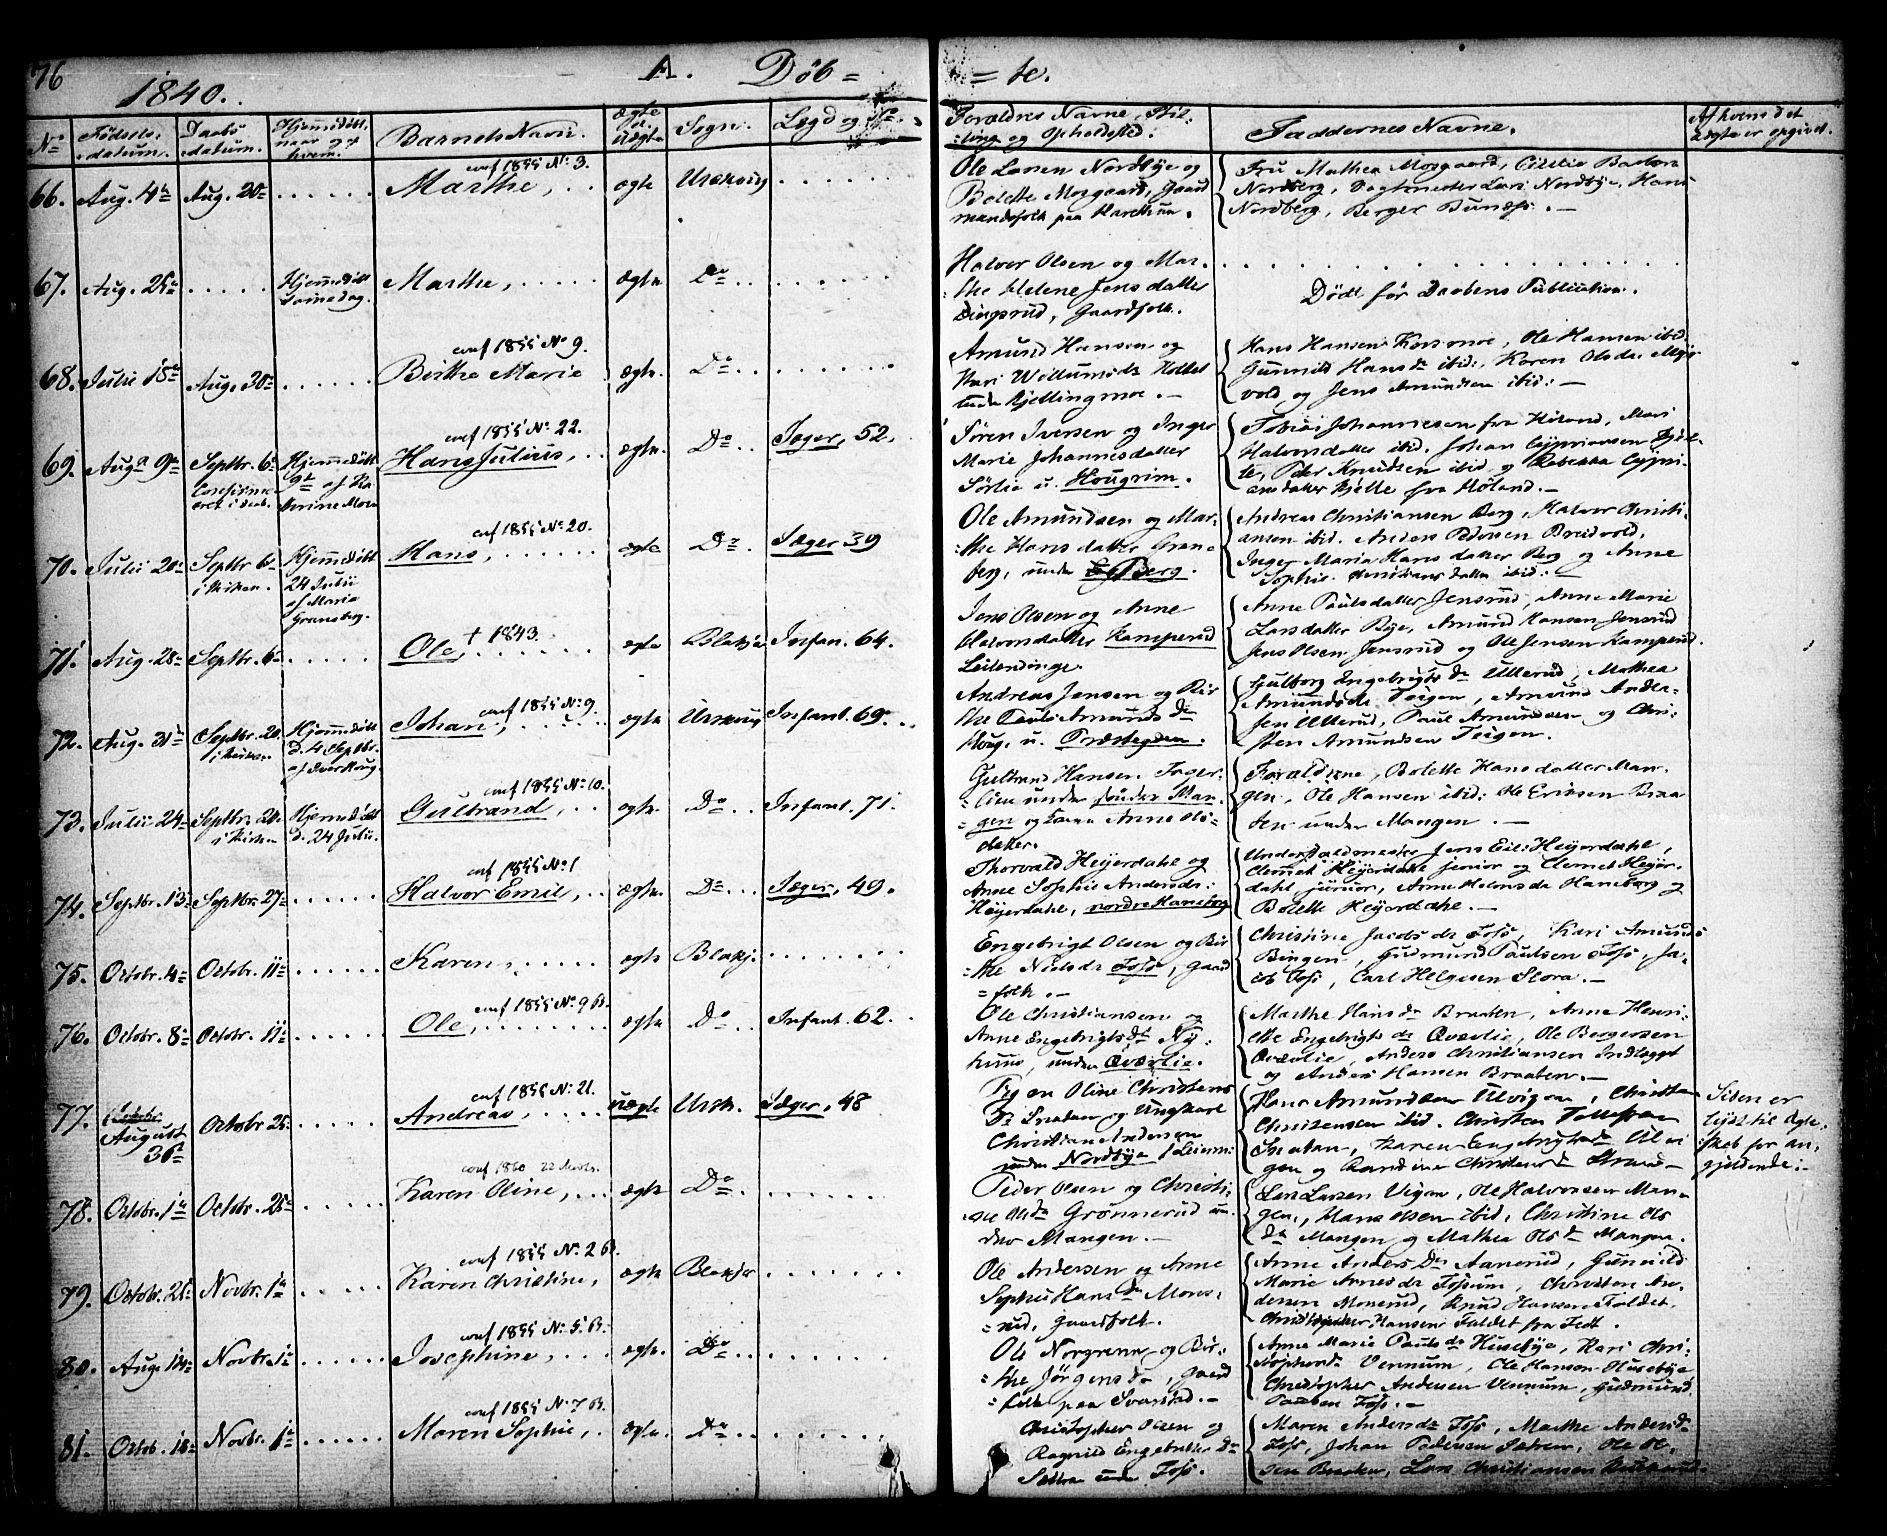 76
1840.
A. Døb=
=te.
No
Fødsels-datum.
Daabs datum.
Hjemmedøbt, naar og af hvem.
Barnets Navn.
ægte el. uægte
Sogn.
Lægd og No.
Forældres Navne, Stilling og Opholdssted.
Faddernes Navne.
Af hvem det ægte er opgivet.
66. Aug. 4de Aug. 20de
conf 1855 No. 3.
Marthe, ægte Urskoug
Ole Larsen Nordbye og
Bolette Morgaard, Gaard
mandsfolk paa
Fru Mathea Morgaard, Cicilie Barbra
Nordberg, Lars Nordbye, Hans
Nordberg, Berger
67. Aug. 25de
Hjemmedøbt
samme dag.
Marthe, ægte Do
Halvor Olsen og Mar-
the Helene Jensdatter
Dingsrud, Gaardfolk.
Død før Daabens Publication.
68. Julii 18de Aug. 30de
conf 1855 No 9.
Birthe Marie ægte Do
Amund Hansen og
Kari
under Kjellingmoe.
Hans Hansen Korsmoe, Ole Hansen ibid.
Gunnild Hansda ibid., Karen Olsda
vold og Jens Amundsen ibid:
69. Aug. 9de Septbr. 6te
Hjemmedøbt
conf 1855 No. 22.
Hans Julius, ægte Do Jæger, 52.
Søren Iversen og Inger
Marie Johannesdatter
Sørlie u. Hougrim.
Tobias Johannesen fra Høland, Mari
Halvorsdatter ibid. Johan Cyprianson
Peder Knudsen ibid. og Rebekka Cypri-
ansdatter fra Høland.
70. Julii 20de Septbr 6te
i Kirken.
Hjemmedøbt
24 Julii
af Maria
Gransberg.
conf 1855 No. 20.
Hans, ægte Do Jæger 39
Ole Amundsen og Mar-
the Hansdatter Gran-
berg, under Berg.
Andreas Christiansen Berg, Halvor Christi-
ansen ibid. Anders Pedersen Breidvold,
Inger Maria Hansdatter Berg og Anne
Sophie Christiansdatter ibid:
71. Aug. 28de Septbr. 6te
† 1843.
Ole, ægte Blakjer Infant. 64.
Jens Olsen og Anne
Halvorsdatter Kamperud
Leilendinge.
Anne Paulsdatter Jensrud, Anne Marie
Larsdatter Bye, Amund Hansen Jensrud
Jens Olsen Jensrud og Ole Jensen Kamperud.
72. Aug. 31te Septbr. 20
i Kirken
Hjemmedøbt
d. 4 Septbr.
af Iver Houg.
conf 1855 No. 9.
Johan, ægte Urskoug Infant. 69.
Andreas Jensen og Bir-
the Amundsda
Houg, u. Præstegden.
Gulborg Engebrigtsda Ullerud, Mathea
Amundsda Teigen, Amund Ander-
sen Ullerud, Paul Amundsen og Chri-
sten Amundsen Teigen.
73. Julii 24de Septbr 20
i Kirken
Hjemmedøbt
d. 24 Julii.
conf 1855 No. 10.
Gulbrand, ægte Do Infant. 71.
Gulbrand Hansen Fager-
lien under søndre Man-
gen og Anne Ols-
datter.
Forældrene, Bolette Hansdatter Man-
gen, Ole Hansen ibid: Ole Eriksen Braa
ten under Mangen.
74. Septbr. 13de Septbr. 27de
conf 1855 No. 1
Halvor Emil, ægte Do Jæger, 49.
Thorvald Heyerdahl og
Anne Sophie Andersda:
Heyerdahl, nordre Haneborg
Jens Heyerdahl,
Clemet Heyerdahl senior og Clemet Heyer-
dahl junior, Anne Haneborg og
Bolette Heyerdahl.
75. Octobr. 4de Octobr. 11te
Karen, ægte Blakj.
Engebrigt Olsen og Bir-
the Nielsda Foss, Gaard
folk.
Christine Jacobsda Foss, Kari Amundsd
Bingen, Gudmund Paulsen Foss, Ja-
cob Foss, Carl Helgesen Stora.
76. Octobr. 8de Octobr. 11te
conf 1855 No. 9 B.
Ole, ægte Do Infant. 62.
Ole Christiansen og
Anne Engebrigtsda Ny-
huus, under Qværlie.
Marthe Hansda Braaten, Anne Henri-
ette Engebrigtsda Qværlie, Ole Bergersen
Qværlie, Anders Christiansen Indlagt
og Anders Hansen Braaten.
77. August
30te
Octobr 25de
conf 1855 No. 21.
Andreas, uægte Ursk. Jæger, 48
Pigen Oline Christens
Da og Ungkarl
Christian Andersen
under Nordbye
Hans Amundsen Christen
Christensen ibid. Christen
og Christensda
Siden er
lyst til Ægte-
skab for an-
gjeldende.
78. Octobr. 1te Octobr. 25de
conf 1860
Karen Oline, ægte Do
Peder Olsen og Christi-
ne Olsda Grønnerud un-
der Mangen.
Lars Larsen Vigen, Ole Halvorsen Man-
gen, Hans Olsen ibid, Christine Ols
da Mangen og Mathea Olsda Mangen.
79. Octobr. 21de Novbr. 1te
conf 1855 No. 2 B.
Karen Christine, ægte Blakjer
Ole Andersen og Anne
Sophie Hansda Mone-
rud, Gaardfolk.
Anne Andersda Aanerud, Gunnild
Marie Arnesda Fossum, Christen An-
dersen Monerud, Knud Hansen Faldet,
Christopher Hansen Faldet fra Fedt.
80. Aug. Novbr. 1te
conf 1855 No. 5 B.
Josephine, ægte Do
Ole Norgreen og Bir-
the Jørgensda, Gaard
folk paa Svarstad.
Anne Marie Paulsda Husebye, Kari Chri-
stophersda Vennum, Ole Hansen Husebye
Christopher Andersen Vennum, Gudmund
Paulsen Foss.
81. Octob. 18de Novbr. 1te
conf 1855 No 7 B.
Maren Sophie, ægte Do
Christopher Olsen og
Ragnild Da
under Foss.
Maren Andersda Foss, Marthe Andersd
Foss, Johan Pedersen Ole Ol-
sen Braaten, Lars Christiansen